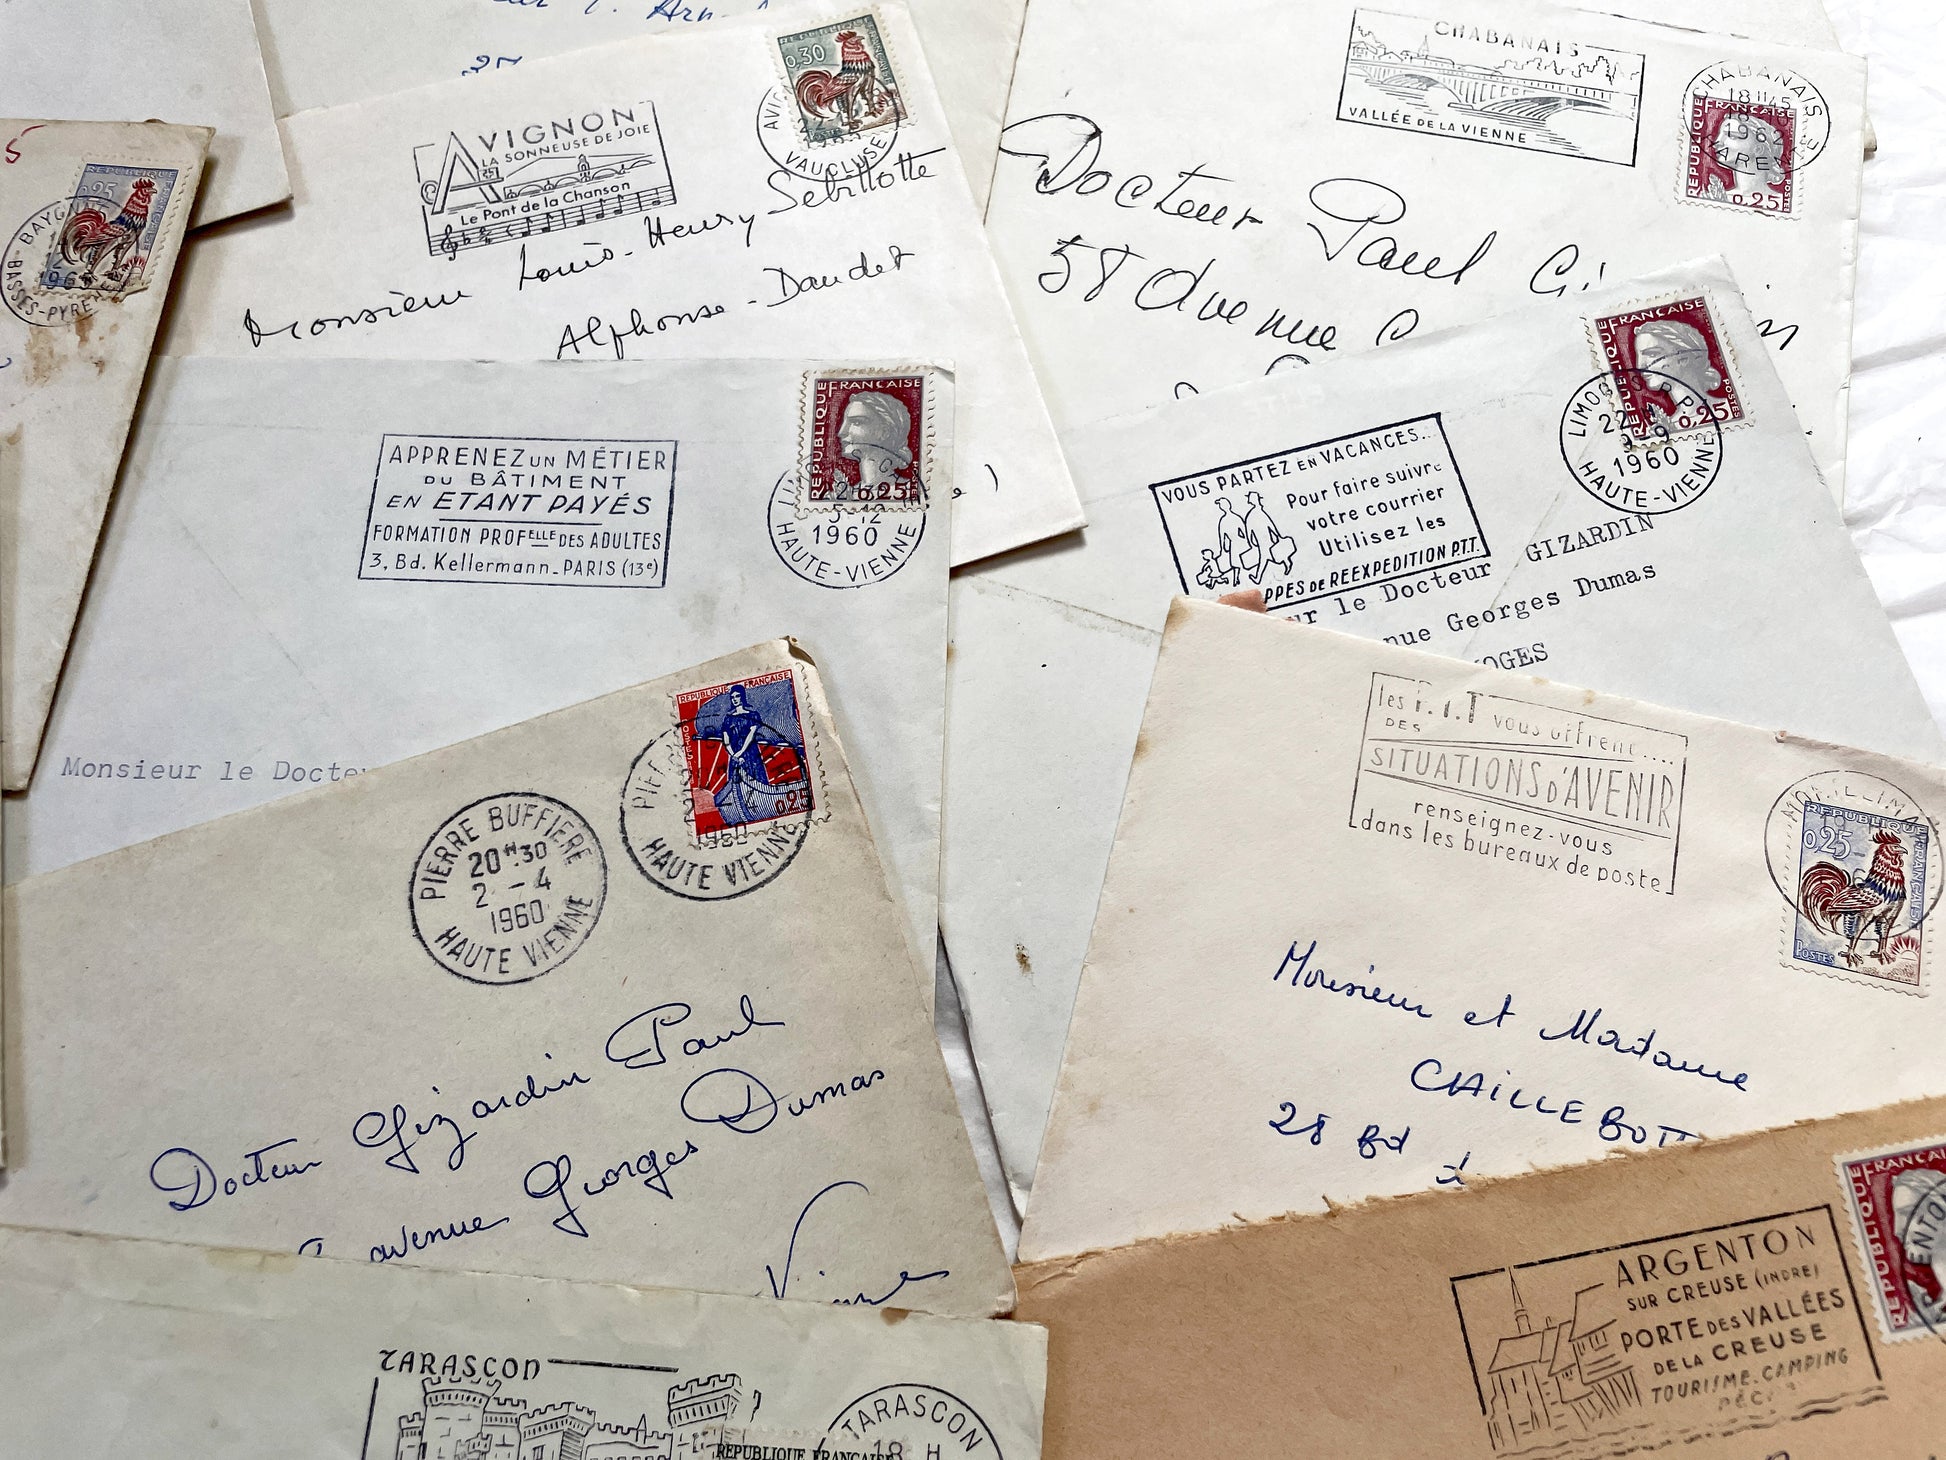 5
0,25
RÉPUBLIQUE
FRANÇAISE
BASSES-PYRÉNÉES
AVIGNON
LA SONNEUSE DE JOIE
Le Pont de la Chanson
RÉPUBLIQUE
FRANÇAISE
0,30
VAUCLUSE
Monsieur Louis-Henry Sebillotte
Alphonse-Daudet
CHABANAIS
VALLÉE DE LA VIENNE
CHABANAIS
18H45
1962
RÉPUBLIQUE
FRANÇAISE
POSTES
0,25
Docteur Paul
58 Avenue
APPRENEZ UN MÉTIER
DU BÂTIMENT
EN ETANT PAYÉS
FORMATION PROFELLE DES ADULTES
3, Bd. Kellermann_PARIS (13e)
RÉPUBLIQUE
FRANÇAISE
0,25
5-12
1960
HAUTE-VIENNE
Monsieur le
VOUS PARTEZ EN VACANCES...
Pour faire suivre
votre courrier
Utilisez les
DE REEXPEDITION P.T.T.
RÉPUBLIQUE
FRANÇAISE
POSTES
0,25
LIMOGES R.P.
22H
9-9
1960
HAUTE-VIENNE
le Docteur GIZARDIN
Georges Dumas
PIERRE BUFFIERE
20H30
2 - 4
1960
HAUTE VIENNE
RÉPUBLIQUE FRANÇAISE
POSTES
0,25
1960
HAUTE VIENNE
Docteur Gizardin Paul
avenue Georges Dumas
les P.T.T vous offrent....
DES
SITUATIONS D'AVENIR
renseignez-vous
dans les bureaux de poste
RÉPUBLIQUE
FRANÇAISE
0,25
POSTES
Monsieur et Madame
28 Bd
TARASCON
TARASCON
18 H
RÉPUBLIQUE FRANÇAISE
ARGENTON
SUR CREUSE (INDRE)
PORTE DES VALLÉES
DE LA CREUSE
TOURISME_CAMPING